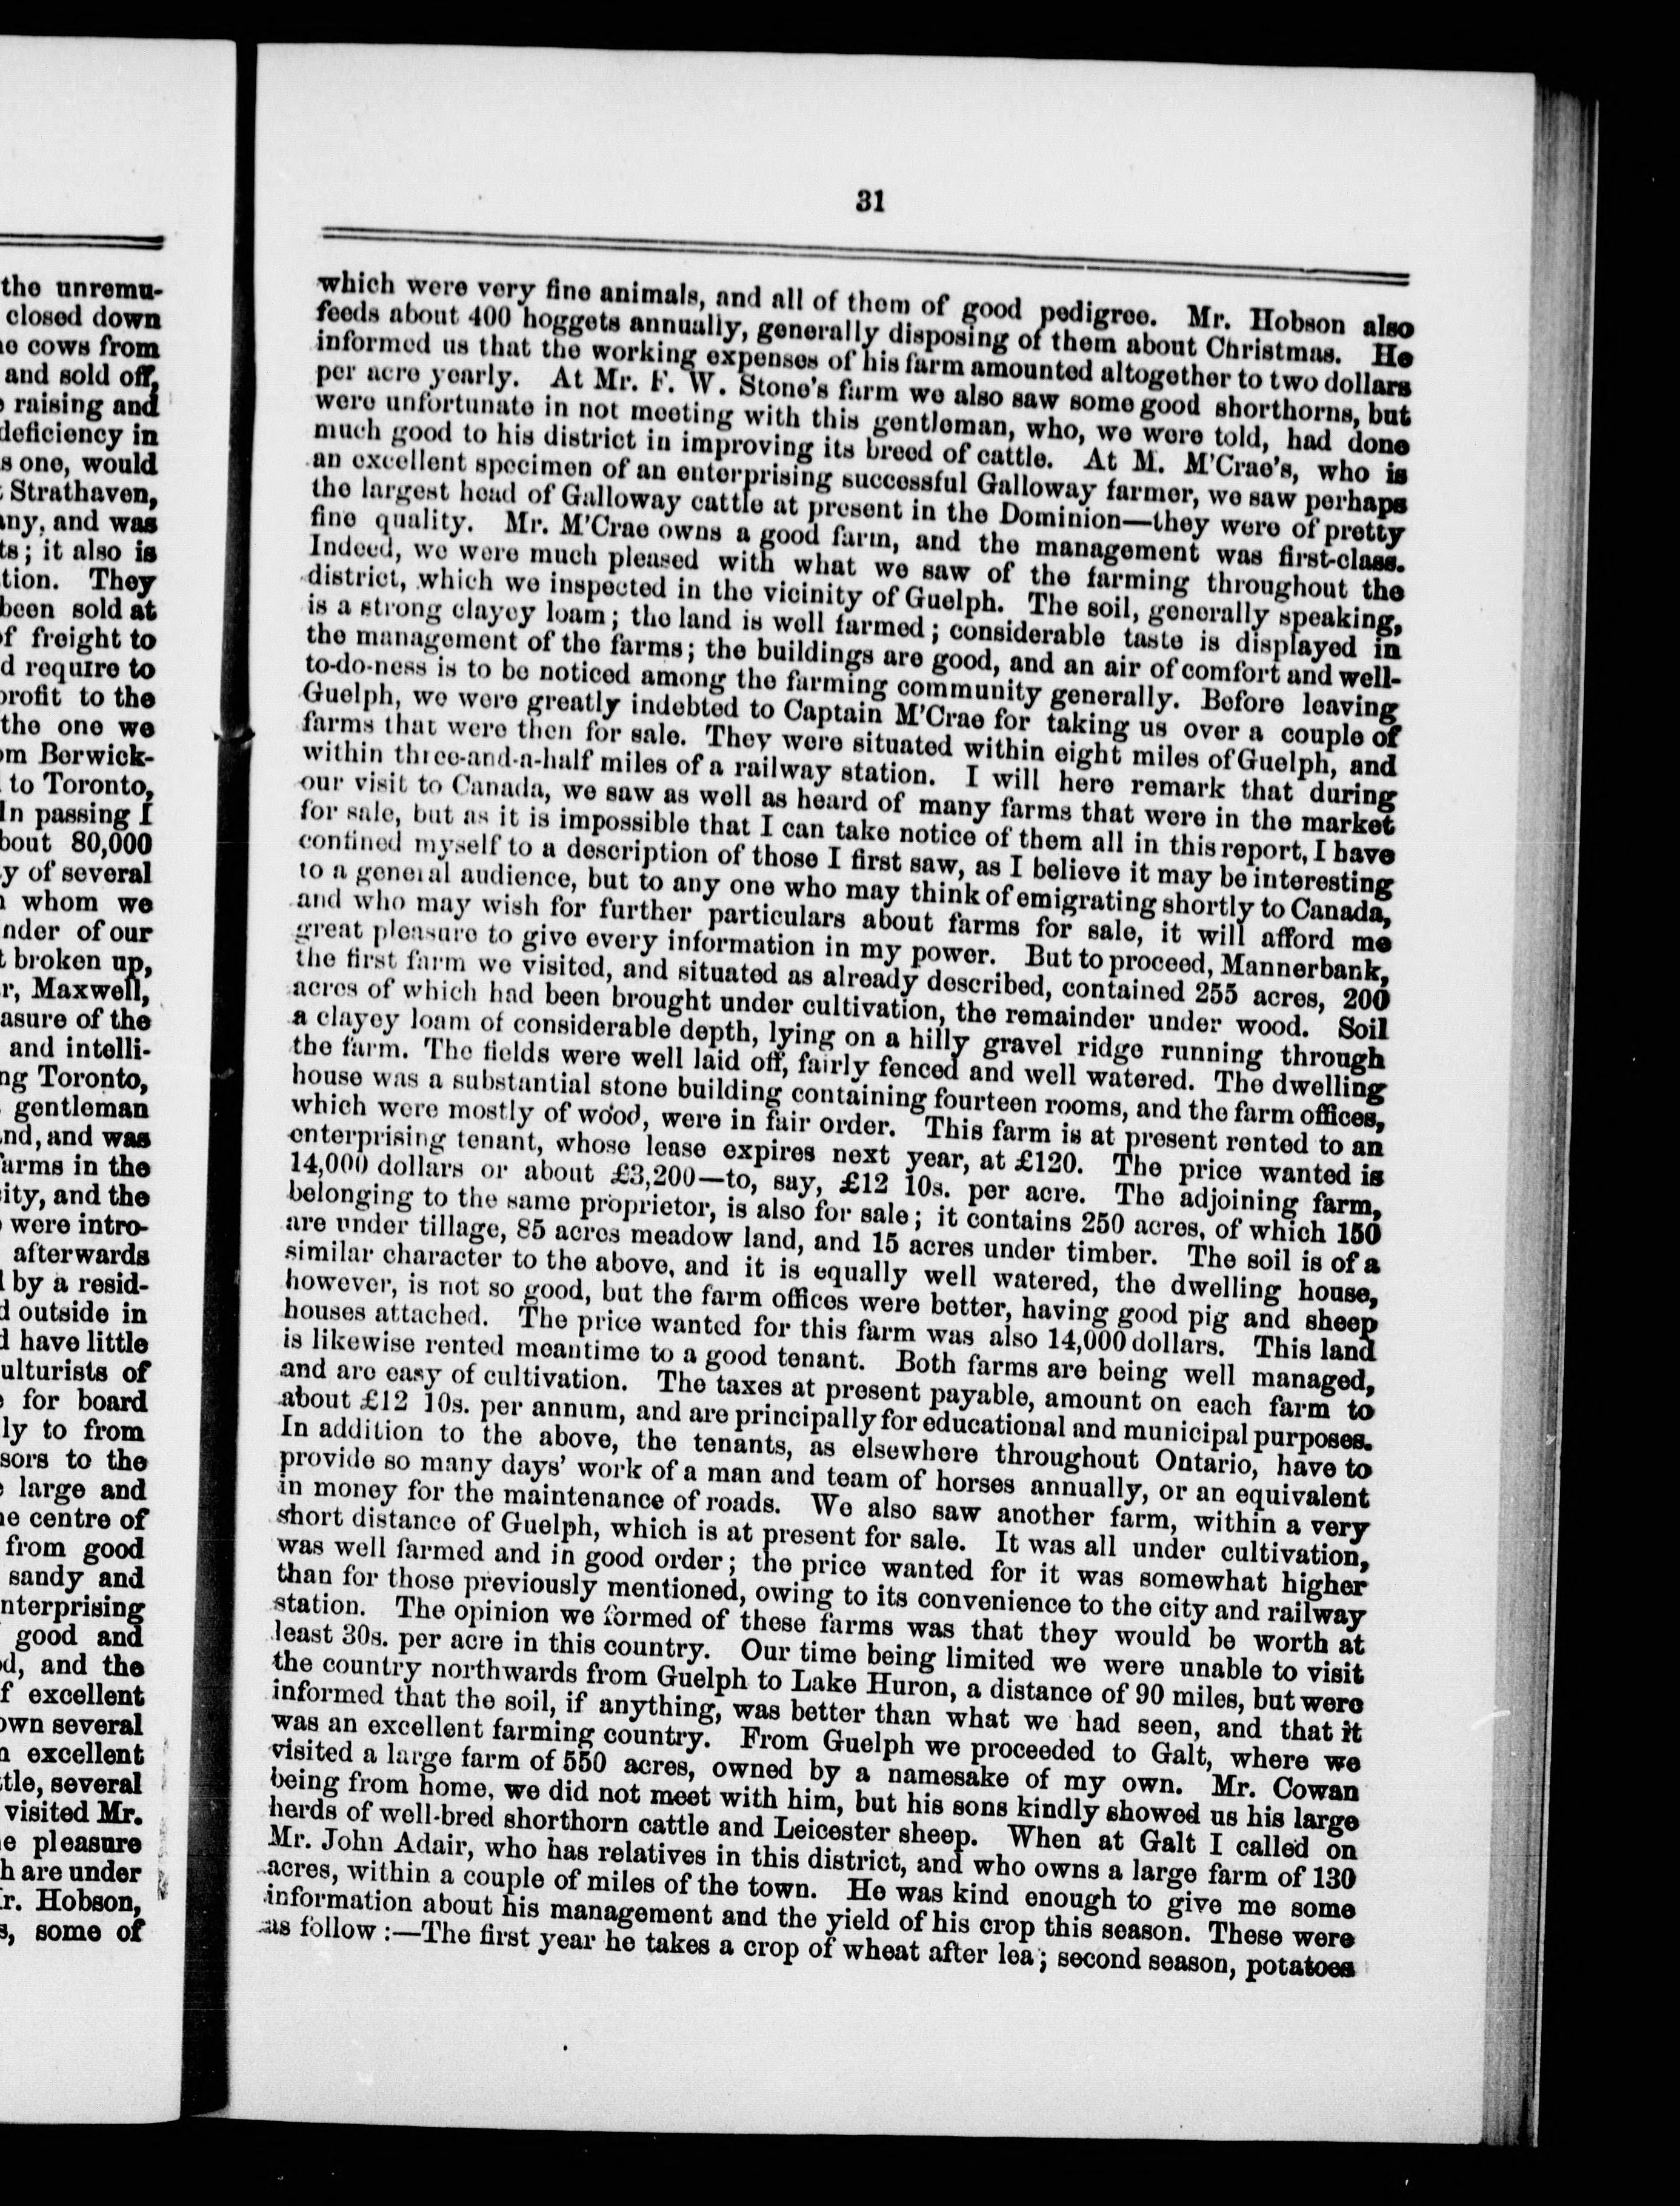 the unremu-
closed down
cows from
and sold off,
raising and
deficiency in
s one, would
Strathaven,
and was
ts; it also is
tion. They
been sold at
of freight to
d require to
profit to the
the one we
om Berwick-
to Toronto,
In passing I
bout 80,000
y of several
whom we
nder of our
t broken up,
r, Maxwell,
asure of the
and intelli-
ng Toronto,
gentleman
nd, and was
farms in the
ity, and the
were intro-
afterwards
by a resid-
d outside in
d have little
ulturists of
for board
ly to from
sors to the
large and
e centre of
from good
sandy and
nterprising
good and
d, and the
f excellent
own several
excellent
tle, several
visited Mr.
e pleasure
h are under
r. Hobson,
s, some of
31
which were very fine animals, and all of them of good pedigree. Mr. Hobson also
feeds about 400 hoggets annually, generally disposing of them about Christmas. He
informed us that the working expenses of his farm amounted altogether to two dollars
per acre yearly. At Mr. F. W. Stone's farm we also saw some good shorthorns, but
were unfortunate in not meeting with this gentleman, who, we were told, had done
much good to his district in improving its breed of cattle. At M. M'Crae's, who is
an excellent specimen of an enterprising successful Galloway farmer, we saw perhaps
the largest head of Galloway cattle at present in the Dominion—they were of pretty
fine quality. Mr. M'Crae owns a good farm, and the management was first-class.
Indeed, we were much pleased with what we saw of the farming throughout the
district, which we inspected in the vicinity of Guelph. The soil, generally speaking,
is a strong clayey loam; the land is well farmed; considerable taste is displayed in
the management of the farms; the buildings are good, and an air of comfort and well-
to-do-ness is to be noticed among the farming community generally. Before leaving
Guelph, we were greatly indebted to Captain M'Crae for taking us over a couple of
farms that were then for sale. They were situated within eight miles of Guelph, and
within three-and-a-half miles of a railway station. I will here remark that during
our visit to Canada, we saw as well as heard of many farms that were in the market
for sale, but as it is impossible that I can take notice of them all in this report, I have
confined myself to a description of those I first saw, as I believe it may be interesting
to a general audience, but to any one who may think of emigrating shortly to Canada,
and who may wish for further particulars about farms for sale, it will afford me
great pleasure to give every information in my power. But to proceed, Mannerbank,
the first farm we visited, and situated as already described, contained 255 acres, 200
acres of which had been brought under cultivation, the remainder under wood. Soil
a clayey loam of considerable depth, lying on a hilly gravel ridge running through
the farm. The fields were well laid off, fairly fenced and well watered. The dwelling
house was a substantial stone building containing fourteen rooms, and the farm offices,
which were mostly of wood, were in fair order. This farm is at present rented to an
enterprising tenant, whose lease expires next year, at £120. The price wanted is
14,000 dollars or about £3,200—to, say, £12 10s. per acre. The adjoining farm,
belonging to the same proprietor, is also for sale; it contains 250 acres, of which 150
are under tillage, 85 acres meadow land, and 15 acres under timber. The soil is of a
similar character to the above, and it is equally well watered, the dwelling house,
however, is not so good, but the farm offices were better, having good pig and sheep
houses attached. The price wanted for this farm was also 14,000 dollars. This land
is likewise rented meantime to a good tenant. Both farms are being well managed,
and are easy of cultivation. The taxes at present payable, amount on each farm to
about £12 10s. per annum, and are principally for educational and municipal purposes.
In addition to the above, the tenants, as elsewhere throughout Ontario, have to
provide so many days' work of a man and team of horses annually, or an equivalent
in money for the maintenance of roads. We also saw another farm, within a very
short distance of Guelph, which is at present for sale. It was all under cultivation,
was well farmed and in good order; the price wanted for it was somewhat higher
than for those previously mentioned, owing to its convenience to the city and railway
station. The opinion we formed of these farms was that they would be worth at
least 30s. per acre in this country. Our time being limited we were unable to visit
the country northwards from Guelph to Lake Huron, a distance of 90 miles, but were
informed that the soil, if anything, was better than what we had seen, and that it
was an excellent farming country. From Guelph we proceeded to Galt, where we
visited a large farm of 550 acres, owned by a namesake of my own. Mr. Cowan
being from home, we did not meet with him, but his sons kindly showed us his large
herds of well-bred shorthorn cattle and Leicester sheep. When at Galt I called on
Mr. John Adair, who has relatives in this district, and who owns a large farm of 130
acres, within a couple of miles of the town. He was kind enough to give me some
information about his management and the yield of his crop this season. These were
as follow:—The first year he takes a crop of wheat after lea; second season, potatoes